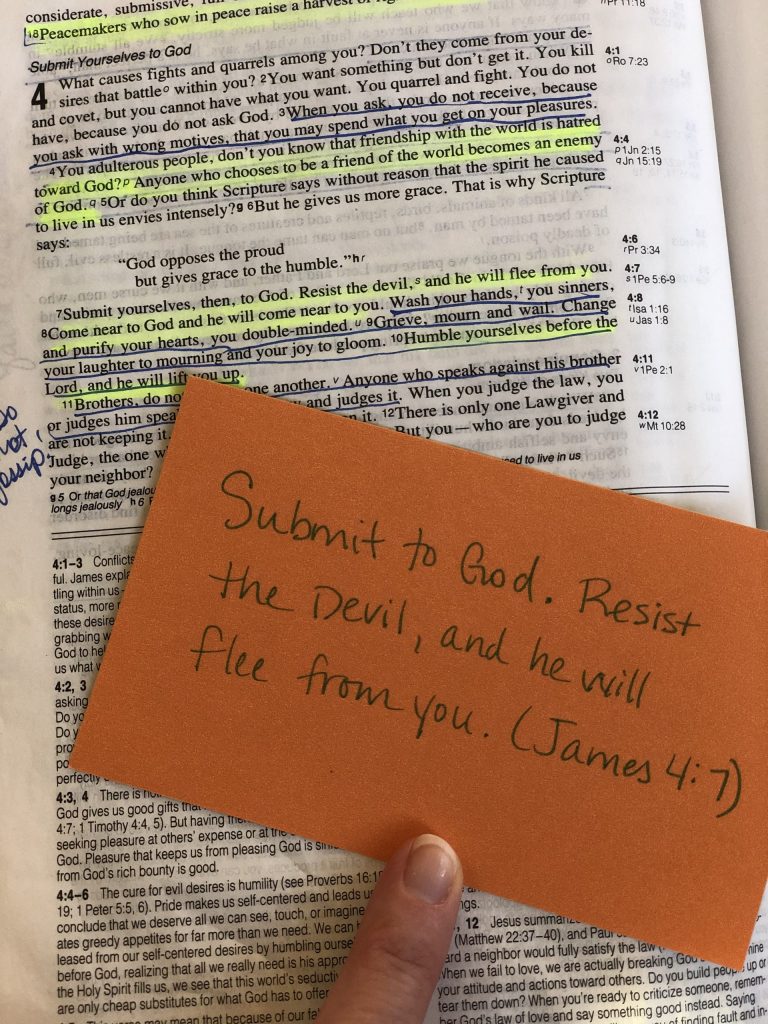 considerate, submissive,
18Peacemakers who sow in peace raise a harvest of
Pr 11:18
Submit Yourselves to God
4 What causes fights and quarrels among you? Don't they come from your de-
sires that battleo within you? 2You want something but don't get it. You kill
and covet, but you cannot have what you want. You quarrel and fight. You do not
have, because you do not ask God. 3When you ask, you do not receive, because
you ask with wrong motives, that you may spend what you get on your pleasures.
4You adulterous people, don't you know that friendship with the world is hatred
toward God?p Anyone who chooses to be a friend of the world becomes an enemy
of God.q 5Or do you think Scripture says without reason that the spirit he caused
to live in us envies intensely?g 6But he gives us more grace. That is why Scripture
says:
"God opposes the proud
but gives grace to the humble."hr
7Submit yourselves, then, to God. Resist the devil,s and he will flee from you.
8Come near to God and he will come near to you. Wash your hands,t you sinners,
and purify your hearts, you double-minded.u 9Grieve, mourn and wail. Change
your laughter to mourning and your joy to gloom. 10Humble yourselves before the
Lord, and he will lift you up.
11Brothers, do no one another.v Anyone who speaks against his brother
or judges him spea and judges it. When you judge the law, you
are not keeping it. n it. 12There is only one Lawgiver and
Judge, the one w But you — who are you to judge
your neighbor?
g5 Or that God jealou ed to live in us
longs jealously h6
4:1
oRo 7:23
4:4
p1Jn 2:15
qJn 15:19
4:6
rPr 3:34
4:7
s1Pe 5:6-9
4:8
tIsa 1:16
uJas 1:8
4:11
v1Pe 2:1
4:12
wMt 10:28
Do
not
gossip!
Submit to God. Resist
the Devil, and he will
flee from you. (James 4:7)
4:1-3 Conflicts
ful. James expla
tling within us
status, more
these desire
grabbing w
God to he
us what
4:2, 3
asking
Do yo
Do y
pro
po
perfectly
4:3, 4 There is no
God gives us good gifts tha
4:7; 1 Timothy 4:4, 5). But having
seeking pleasure at others' expense or at the
God. Pleasure that keeps us from pleasing God is sin
from God's rich bounty is good.
4:4-6 The cure for evil desires is humility (see Proverbs 16:18
19; 1 Peter 5:5, 6). Pride makes us self-centered and leads us
conclude that we deserve all we can see, touch, or imagine
ates greedy appetites for far more than we need. We can
leased from our self-centered desires by humbling ourse
before God, realizing that all we really need is his appro
the Holy Spirit fills us, we see that this world's seducti
are only cheap substitutes for what God has to offer
This verse may mean that because of our fa
ngs.
12 Jesus summariz
(Matthew 22:37-40), and Paul
ard a neighbor would fully satisfy the law
When we fail to love, we are actually breaking God
your attitude and actions toward others. Do you build people up or
tear them down? When you're ready to criticize someone, remem-
ber God's law of love and say something good instead. Saying
of finding fault and in-